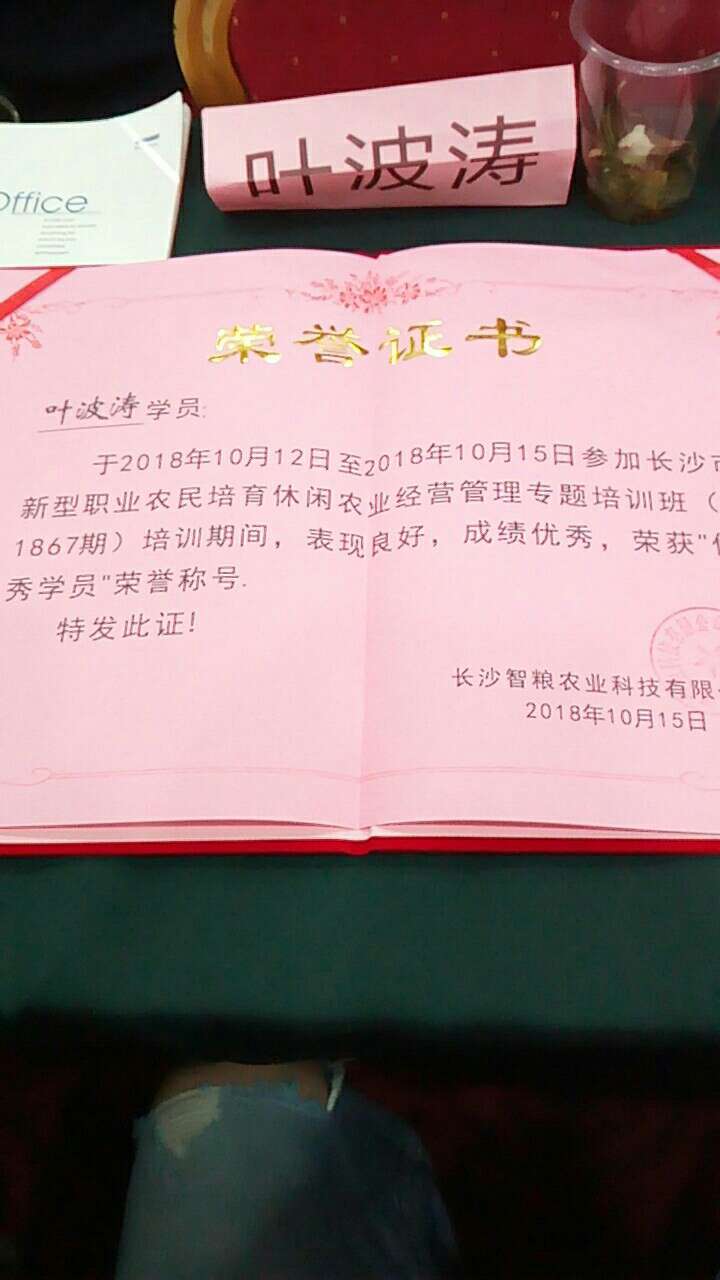 叶波涛
Office
荣誉证书
叶波涛学员:
于2018年10月12日至2018年10月15日参加长沙市
新型职业农民培育休闲农业经营管理专题培训班（
1867期）培训期间，表现良好，成绩优秀，荣获"优
秀学员"荣誉称号.
特发此证!
长沙智粮农业科技有限
2018年10月15日